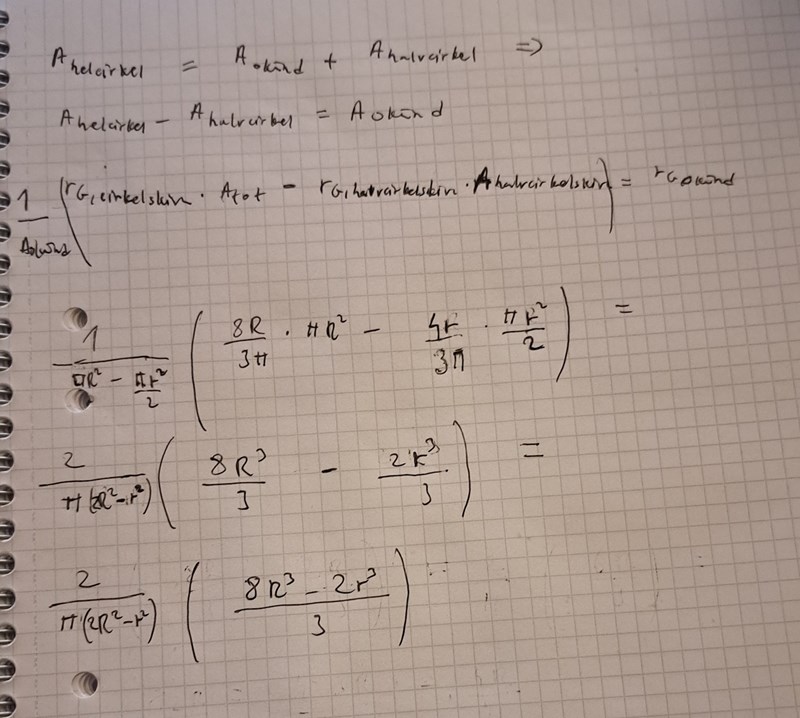 A helcirkel = A okänd + A halvcirkel ⇒
A helcirkel − A halvcirkel = A okänd
1/A okänd (r G, cirkelskiva · A tot − r G, halvcirkelskiva · A halvcirkelskiva) = r G okänd
1/(πR² − πr²/2) (8R/3π · πR² − 4r/3π · πr²/2) =
2/(π(2R²−r²)) (8R³/3 − 2r³/3) =
2/(π(2R²−r²)) ((8R³ − 2r³)/3)